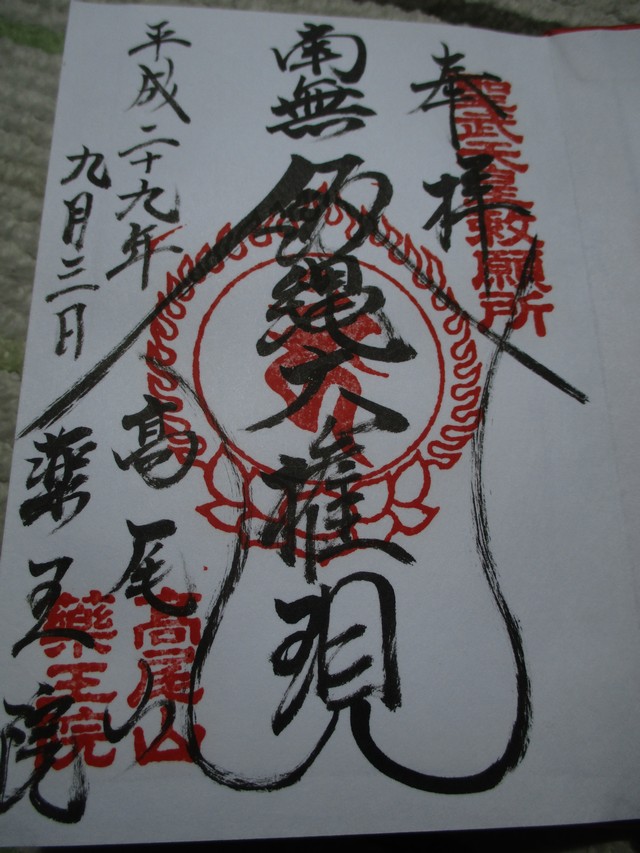 奉拝
聖武天皇敕願所
南無飯縄大権現
平成二十九年
九月三日
高尾山
薬王院
高尾山
藥王院